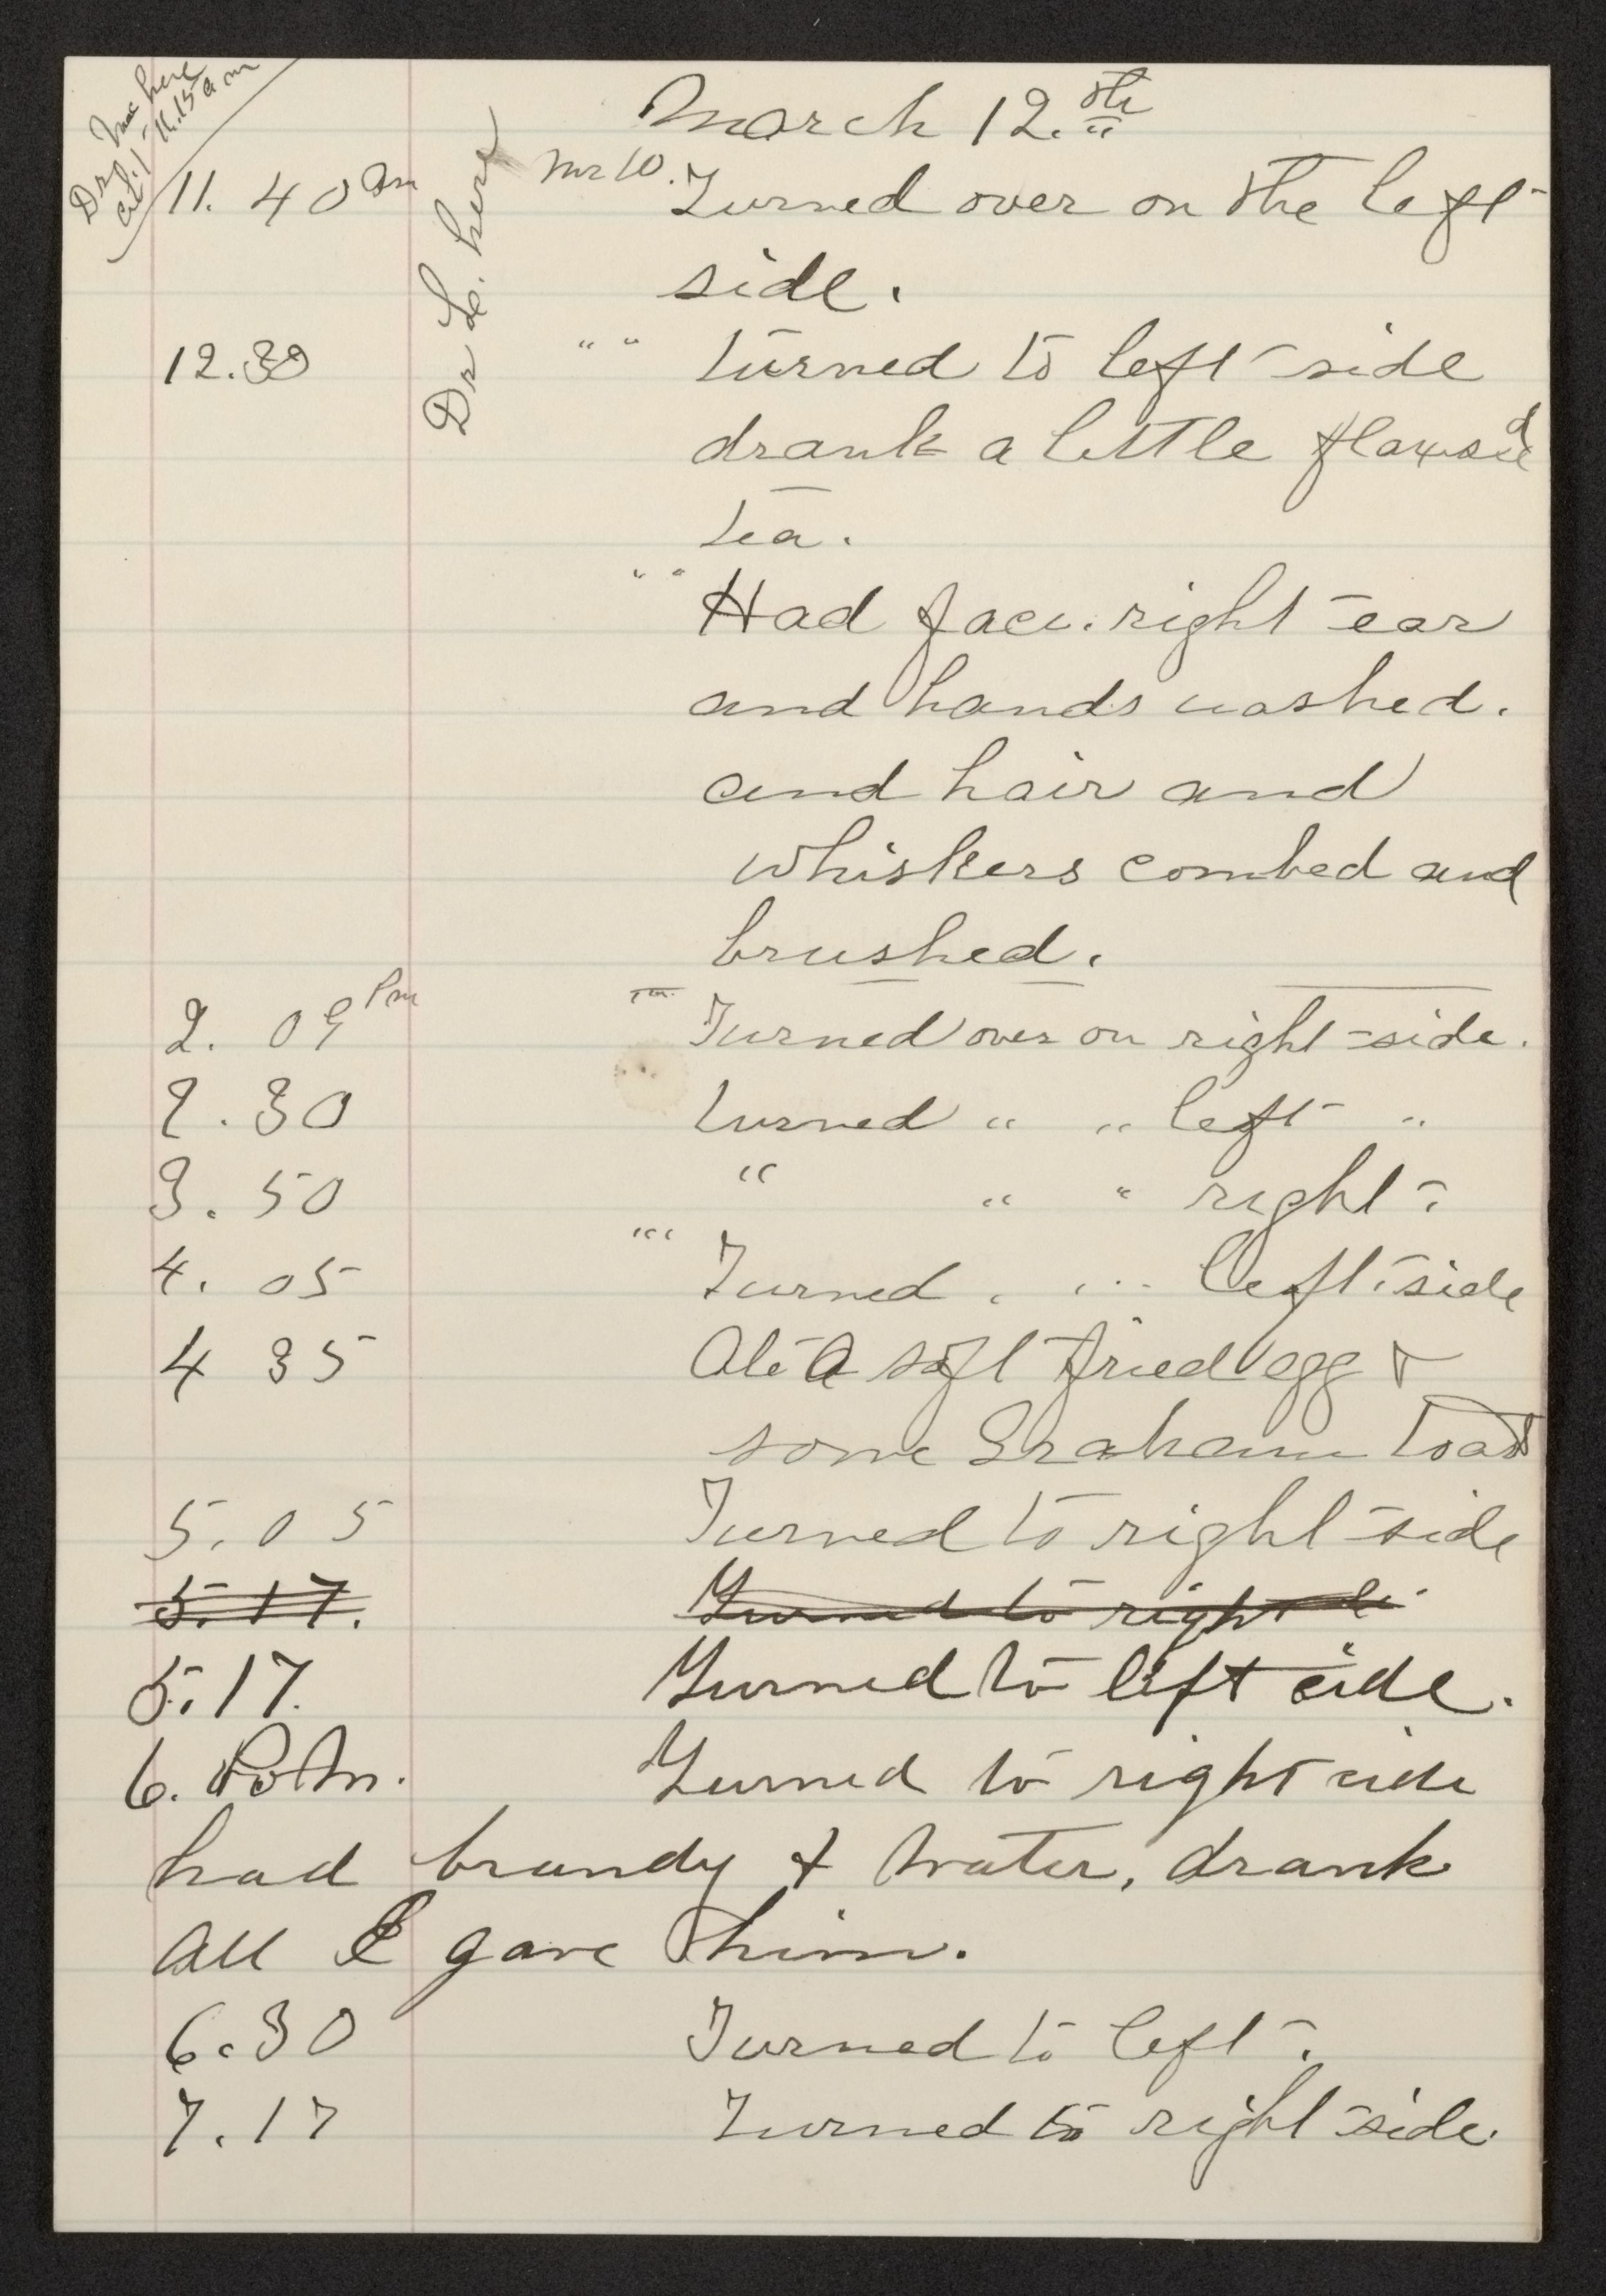 Dr Mc here
at 11.15 a m
March 12.th
Dr L. here
11. 40 am Mr W. Turned over on the left
side.
12.30 " " turned to left side
drank a little flaxseed
tea.
" " Had face. right ear
and hands washed.
and hair and
whiskers combed and
brushed.
2. 09 Pm " " Turned over on right side.
2. 30 turned " " left "
3. 50 " " " right "
4. 05 " " Turned " " left side
4 35 Ate a soft fried egg &
some Graham toast
5. 05 Turned to right side
5.17. Turned to right si
5.17. Turned to left side.
6. P.M. Turned to right side
had brandy & water, drank
all I gave him.
6.30 Turned to left.
7.17 Turned to right side.